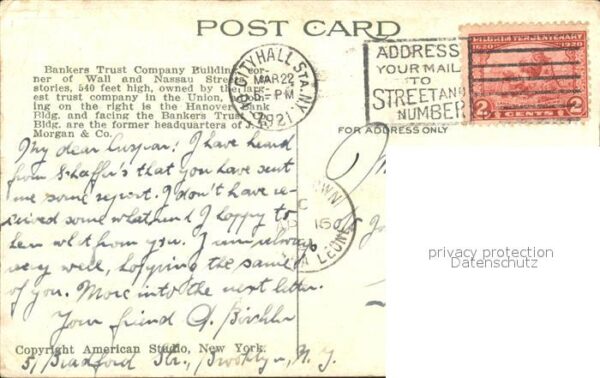 POST CARD
Bankers Trust Company Building, cor-
ner of Wall and Nassau Stre
stories, 540 feet high, owned by the lar
est trust company in the Union,
ing on the right is the Hanover Bank
Bldg. and facing the Bankers Trust
Bldg. are the former headquarters of J.
Morgan & Co.
CITY HALL STA. N.Y.
MAR 22
5- PM
1921
ADDRESS
YOUR MAIL
TO
STREET AND
NUMBER
PILGRIM TERCENTENARY
1620 1920
2 CENTS 2
FOR ADDRESS ONLY
My dear I have heard
from Schaffer's that you have sent
me some report. I don't have re-
ceived some what and I happy to
from you. I am always
very well, hopping the same
of you. More into the next letter.
Your friend
OWN
C
AP 16
LEONE
privacy protection
Datenschutz
Copyright American Studio, New York.
51 Bradford Str., Brooklyn, N. Y.